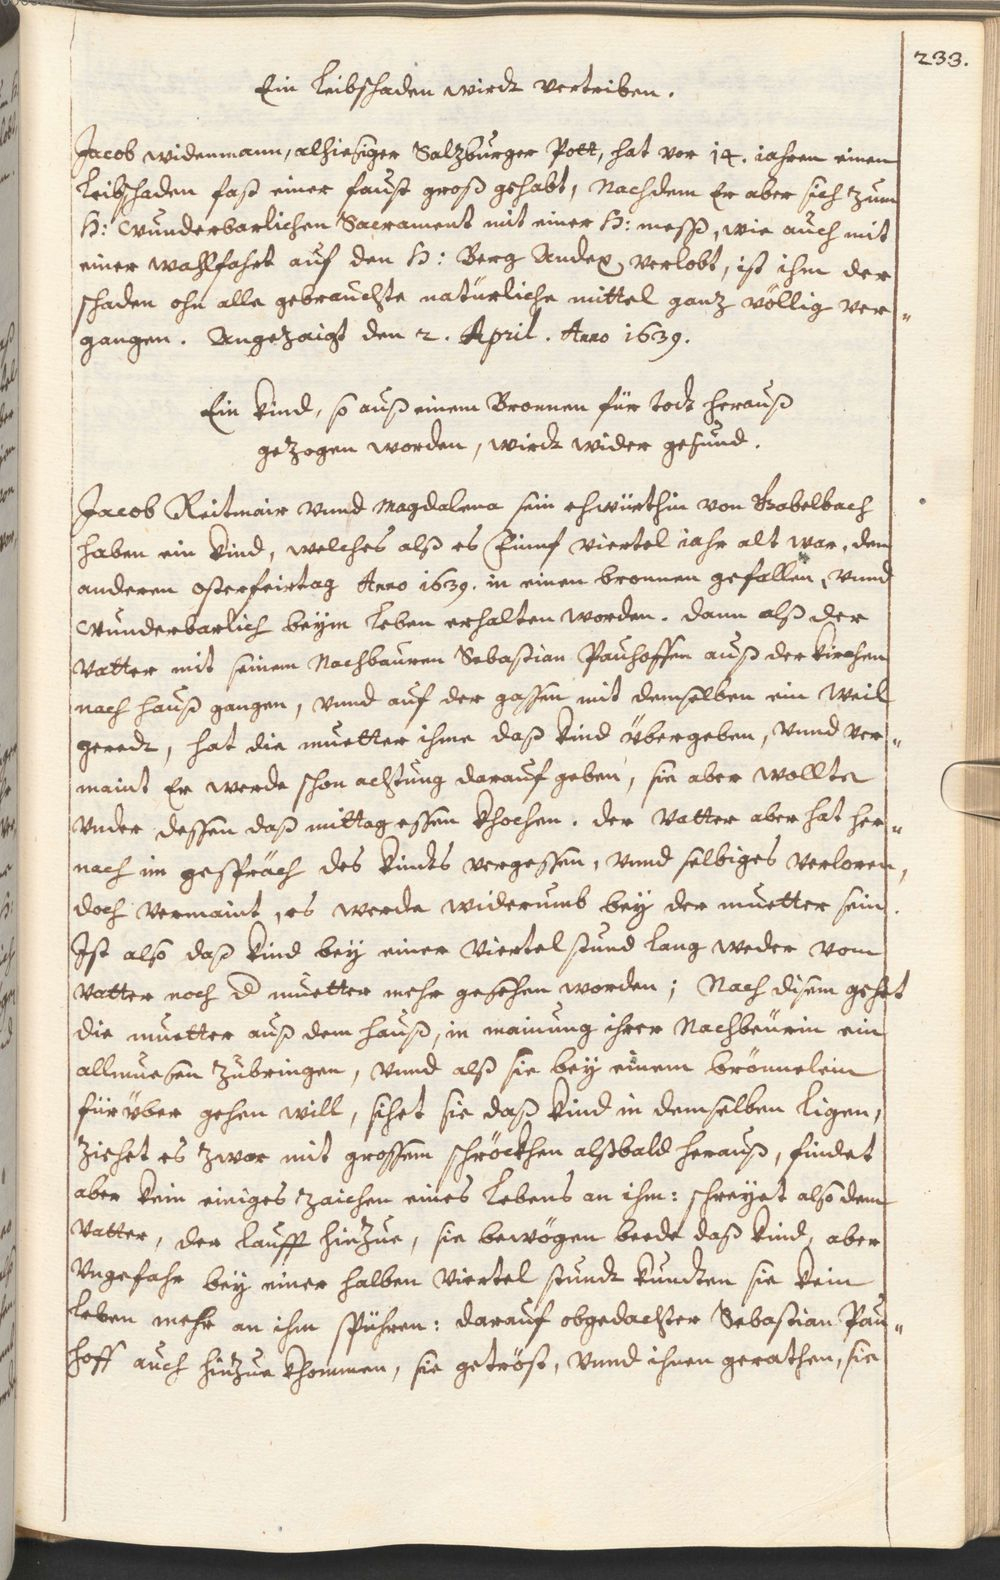 233.
Ein Leibschaden wirdt vertriben.
Jacob Widenmann, alhiesiger Salzburger Pott, hat vor 14. iahren einen
Leibschaden fast einer faust groß gehabt, Nachdem Er aber sich zum
H: Wunderbarlichen Sacrament mit einer H: mess, wie auch mit
einer Wahlfahrt auf den H: Berg Andex verlobt, ist ihm der
schaden ohn alle gebrauchte natürliche mittel ganz völlig ver-
gangen. Angezaigt den 2. April. Anno 1639.
Ein Kind, so auß einem Bronnen für todt herauß
gezogen worden, wirdt wider gesund.
Jacob Reitmair vnnd Magdalena sein ehwürthin von Gabelbach
haben ein Kind, welches alß es Finnf viertel iahr alt war, den
anderen Osterfeirtag Anno 1639. in einen bronnen gefallen, vnnd
Wunderbarlich beym Leben erhalten worden. dann alß der
Vatter mit seinem Nachbauren Sebastian Pauhoffen auß der Kirchen
nach hauß gangen, vnnd auf der gassen mit demselben ein Weil
geredt, hat die muetter ihme daß Kind übergeben, vnnd ver-
maint Er werde schon achtung darauf geben, sie aber wollte
vnder dessen daß mittag essen khochen. der Vatter aber hat her-
nach im gespräch des Kindts vergessen, vnnd selbiges verloren,
doch vermaint, es werde widerumb bey der muetter sein.
Ist also daß Kind bey einer Viertel stund lang weder vom
Vatter noch d muetter mehr gesehen worden; Nach disem gehet
die muetter auß dem hauß, in mainung ihrer Nachbeürin ein
allmuesen zubringen, vnnd alß sie bey einem brönnelein
fürüber gehen will, sihet sie daß Kind in demselben ligen,
ziehet es zwar mit grossem schröckhen alßbald herauß, findet
aber kein einiges zaichen eines Lebens an ihm: schreyet also dem
Vatter, der laufft hinzue, sie bewögen beede daß Kind, aber
Vngefahr bey einer halben Viertel stundt kundten sie kein
leben mehr an ihm spühren: darauf obgedachter Sebastian Pau-
hoff auch hinzue khommen, sie getröst, vnnd ihnen gerathen, sie